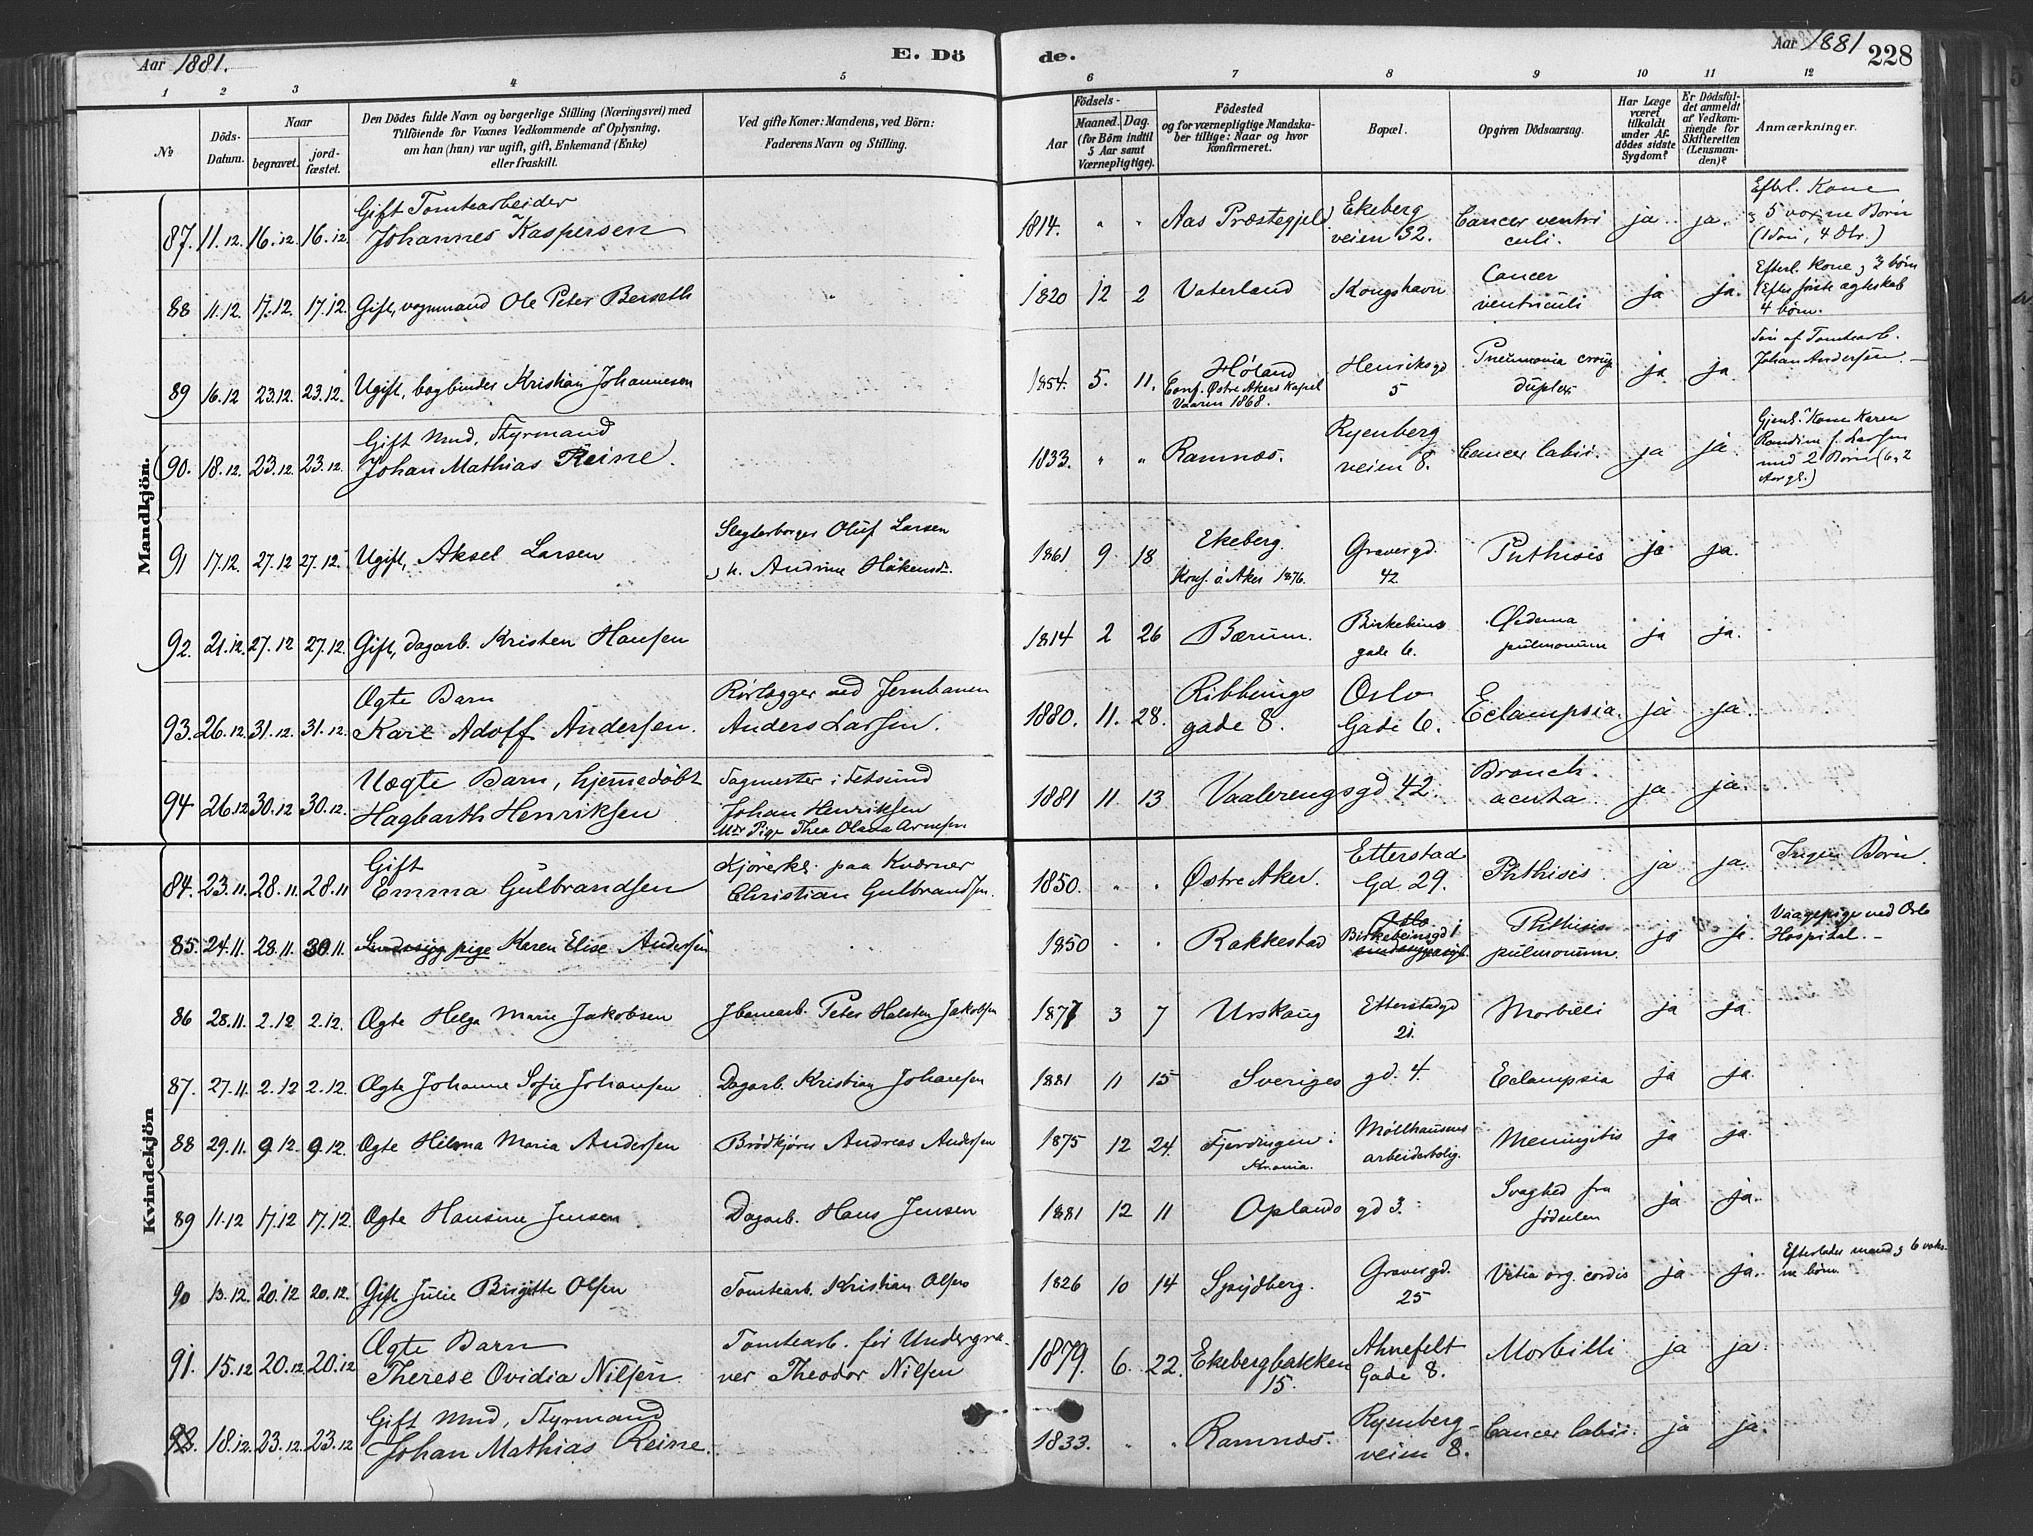 Aar 1881.
E. Döde.
Aar 1881
228
1 2 3 4 5 6 7 8 9 10 11 12
№
Döds-Datum.
Naar
begravet.
jordfæstet.
Den Dödes fulde Navn og borgerlige Stilling (Næringsvei) med
Tilföiende for Voxnes Vedkommende af Oplysning,
om han (hun) var ugift, gift, Enkemand (Enke)
eller fraskilt.
Ved gifte Koner: Mandens, ved Börn:
Faderens Navn og Stilling.
Födsels-
Aar
Maaned. Dag.
(for Börn indtil
5 Aar samt
Værnepligtige).
Födested
og for værnepligtige Mandska-
ber tillige: Naar og hvor
konfirmeret.
Bopæl.
Opgiven Dödsaarsag.
Har Læge
været
tilkaldt
under Af-
dödes sidste
Sygdom?
Er Dödsfal-
det anmeldt
af Vedkom-
mende for
Skifteretten
(Lensman-
den)?
Anmærkninger.
Mandkjön.
87. 11.12 16.12 16.12 Gift Tomtearbeider Johannes Kaspersen 1814. " " Aas Præstegjeld Ekeberg veien 32. Cancer ventriculi. ja. ja. Efterl. Kone & 5 voxne Børn (1 Søn, 4 Dtr.)
88 11.12. 17.12 17.12. Gift, vognmand Ole Peter Berseth " 1820 12 2 Vaterland Kongshavn Cancer ventriculi ja ja. Efterl. Kone & 3 børn Efter første ægteskab 4 børn.
89 16.12 23.12. 23.12. Ugift, bogbinder Kristian Johannesen 1854. 5. 11. Høland Conf. Østre Akers Kapel Vaaren 1868. Henriksgd 5 Pneumonia croup duplex ja ja. Søn af Tomtearb. Johan Andersen.
90. 18.12. 23.12 23.12. Gift Mnd, Styrmand Johan Mathias Reine. 1833. " " Ramnæs. Ryenberg veien 8. Cancer labii. ja ja. Gjenl. Kone Karen Randine f. Larsen med 2 Børn (6 & 2 Aar gl.)
91 17.12. 27.12 27.12. Ugift, Aksel Larsen Slagterborger Oluf Larsen & h. Andrine Håkensdr. 1861 9. 18 Ekeberg. Konf. ö. Aker 1876. Gravergd. 42 Phthisis ja ja.
92. 21.12. 27.12 27.12. Gift, dagarb. Kristen Hansen 1814 2 26 Bærum. Birkebeinergade 6. Oedema pulmonum ja ja.
93. 26.12 31.12 31.12. Ægte Barn Karl Adolf Andersen. Rørlægger ved Jernbanen Anders Larsen. 1880. 11. 28. Ribbungs gade 8. Oslo Gade 6. Eclampsia. ja ja.
94 26.12 30.12 30.12. Uægte Barn, hjemmedøbt Hagbarth Henriksen Sagmester i Fetsund Johan Henriksen Mdr Pige Thea Olava Arnesen 1881 11 13 Vaalerengsgd 42. Bronch. acuta ja ja.
Kvindekjön
84. 23.11. 28.11. 28.11 Gift Emma Gulbrandsen Kjørerkl. paa Kværner Christian Gulbrandsen. 1850. " " Østre Aker. Etterstad Gd. 29. Phthisis. ja ja. Ingen Børn.
85. 24.11. 28.11. 30.11. pige Karen Elise Andersen 1850 . . Rakkestad Oslo Birkebeinsgd 1 Phthisis pulmonum. ja ja. Vaagepige ved Oslo Hospital.
86 28.11. 2.12 2.12. Ægte Helga Marie Jakobsen Jbanearb. Peter Halsten Jakobsen 1877 3 7 Urskoug Etterstadgd 21. Morbilli ja ja.
87. 27.11. 2.12 2.12. Ægte Johanne Sofie Johansen Dagarb. Kristian Johansen 1881 11 15 Sveriges gd. 4. Eclampsia ja ja.
88 29.11. 9.12. 9.12. Ægte Hilma Maria Andersen Brødkjører Andreas Andersen 1875 12 24. Fjerdingen i Krania. Møllhausens arbeiderbolig. Meningitis ja ja.
89 11.12 17.12 17.12. Ægte Hansine Jensen Dagarb. Hans Jensen 1881 12 11 Oplands gd 3. Svaghed fra fødselen ja ja.
90 13.12. 20.12 20.12. Gift Julie Birgitte Olsen Tomtearb. Kristian Olsen 1826 10 14 Spydberg. Gravergd. 25 Vitia org. cordis ja ja. Efterlader mand & 6 voksne børn.
91. 15.12 20.12 20.12 Ægte Barn Therese Ovidia Nilsen Tomtearb. før Undergraver Theodor Nilsen 1879. 6. 22. Ekebergbakken 15. Ahnefelt Gade 8. Morbilli ja ja.
18.12. 23.12. 23.12 Gift Mnd, Styrmand Johan Mathias Reine. 1833. " " Ramnæs. Ryenberg-veien 8. Cancer labii. ja ja.